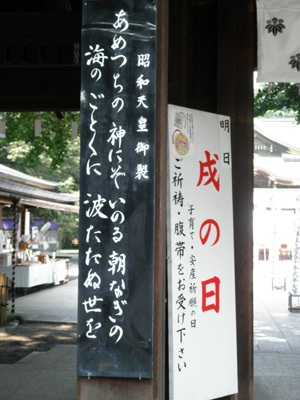 昭和天皇御製
あめつちの 神にぞ いのる 朝なぎの
海の ごとくに 波たたぬ世を
明日
戌の日
子育て・安産祈願の日
ご祈祷・腹帯をお受け下さい